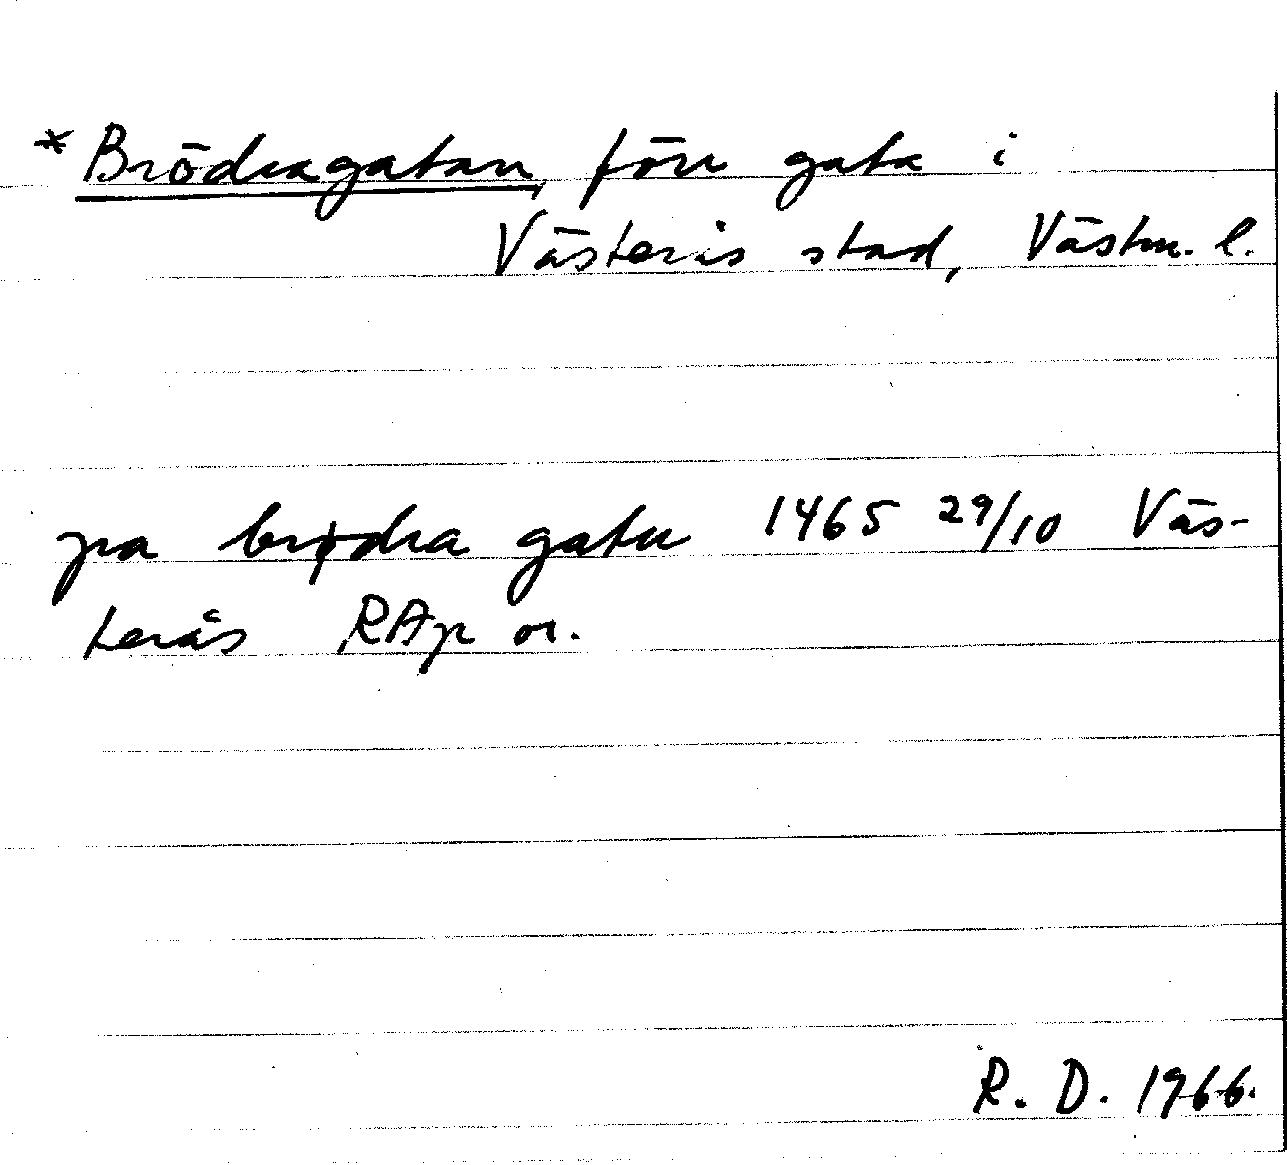 * Brödragatan, förr gata i
Västerås stad, Västm. l.
pa brødra gatu 1465 29/10 Väs-
terås RAp or.
R. D. 1966.